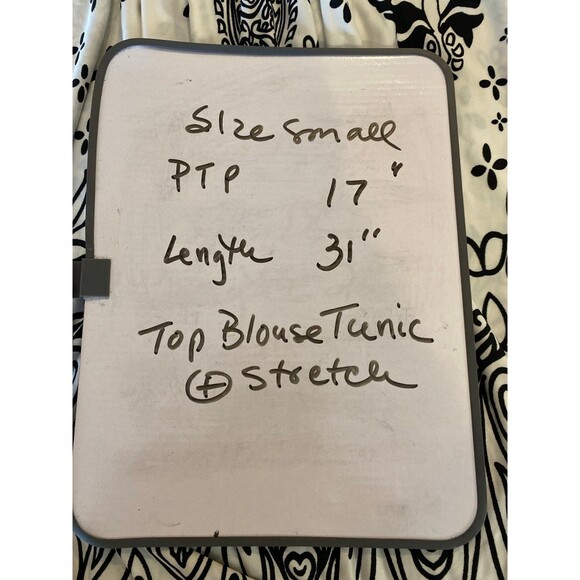 Size Small
PTP 17"
Length 31"
Top Blouse Tunic
⊕ Stretch